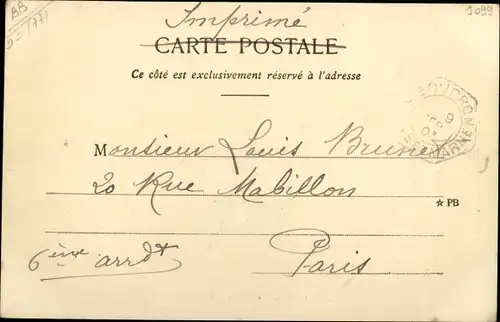 1099
BB
Imprimé
CARTE POSTALE
Ce côté est exclusivement réservé à l'adresse
Monsieur Louis Brunet
20 Rue Mabillon
★ PB
6ème arrdt
Paris